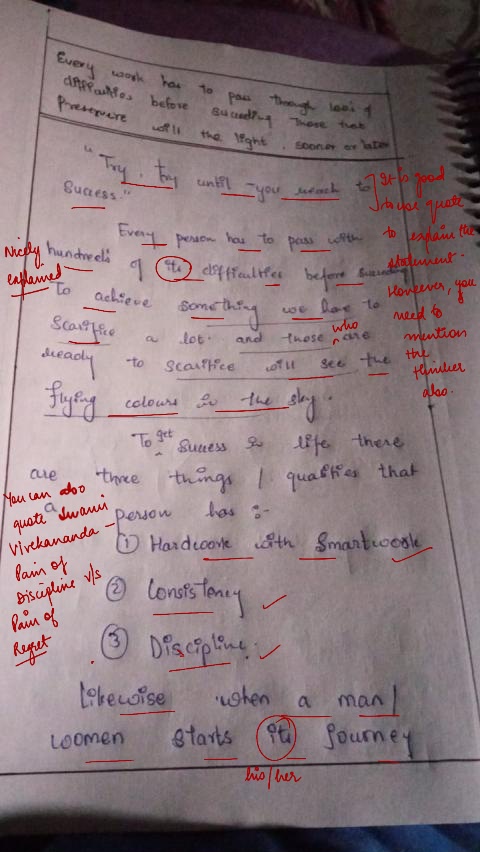 Every work has to pass through 100's of
difficulties before succeeding Those that
Preservere will the light, sooner or later
"Try, try until you reach to
Success."
It is good
to use quote
to explain the
statement.
However, you
need to
mention
the
thinker
also.
Every person has to pass with
hundred's of its difficulties before succeeding
Nicely
explained
To achieve something we have to
Scarifice a lot. and those who are
ready to scarifice will see the
flying colours in the sky.
To get success in life there
are three things / qualities that
a person has :-
You can also
quote Swami
Vivekananda –
Pain of
Discipline v/s
Pain of
Regret
① Hardwork with Smartwork
② Consistency
③ Discipline.
Likewise when a man/
women starts its journey
his/her